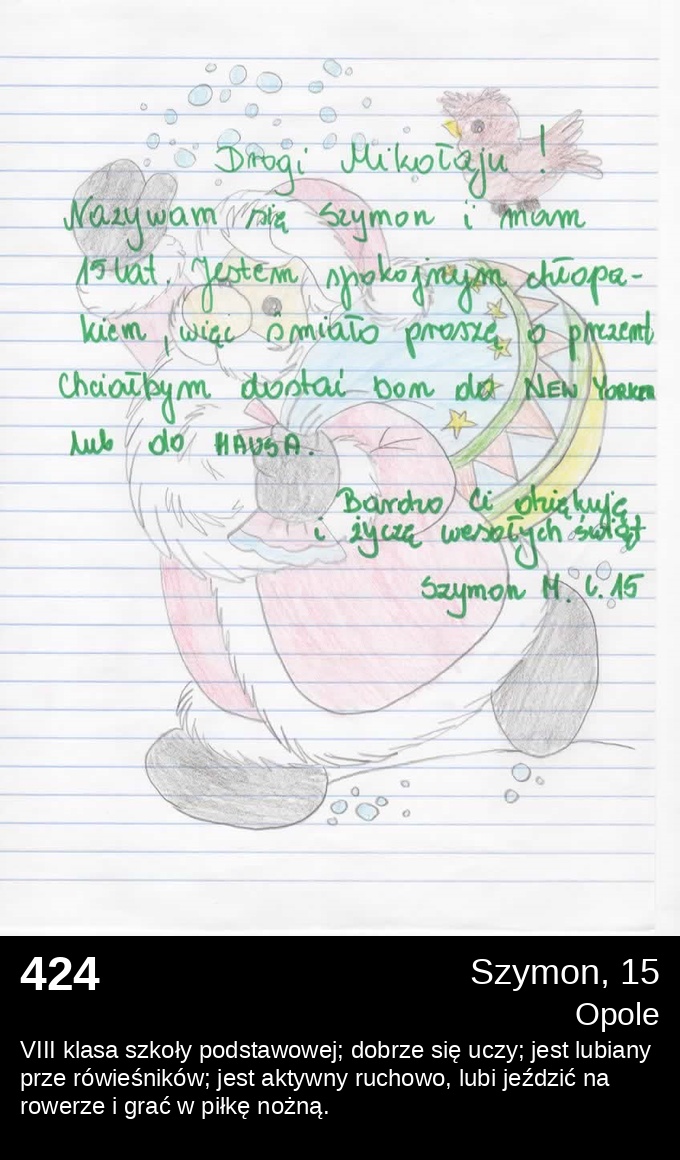 Drogi Mikołaju !
Nazywam się Szymon i mam
15 lat. Jestem spokojnym chłopa-
kiem, więc śmiało proszę o prezent
Chciałbym dostać bon do NEW YORKER
lub do HAUSA.
Bardzo Ci dziękuję
i życzę wesołych świąt
Szymon M. l. 15
424
Szymon, 15
Opole
VIII klasa szkoły podstawowej; dobrze się uczy; jest lubiany
prze rówieśników; jest aktywny ruchowo, lubi jeździć na
rowerze i grać w piłkę nożną.